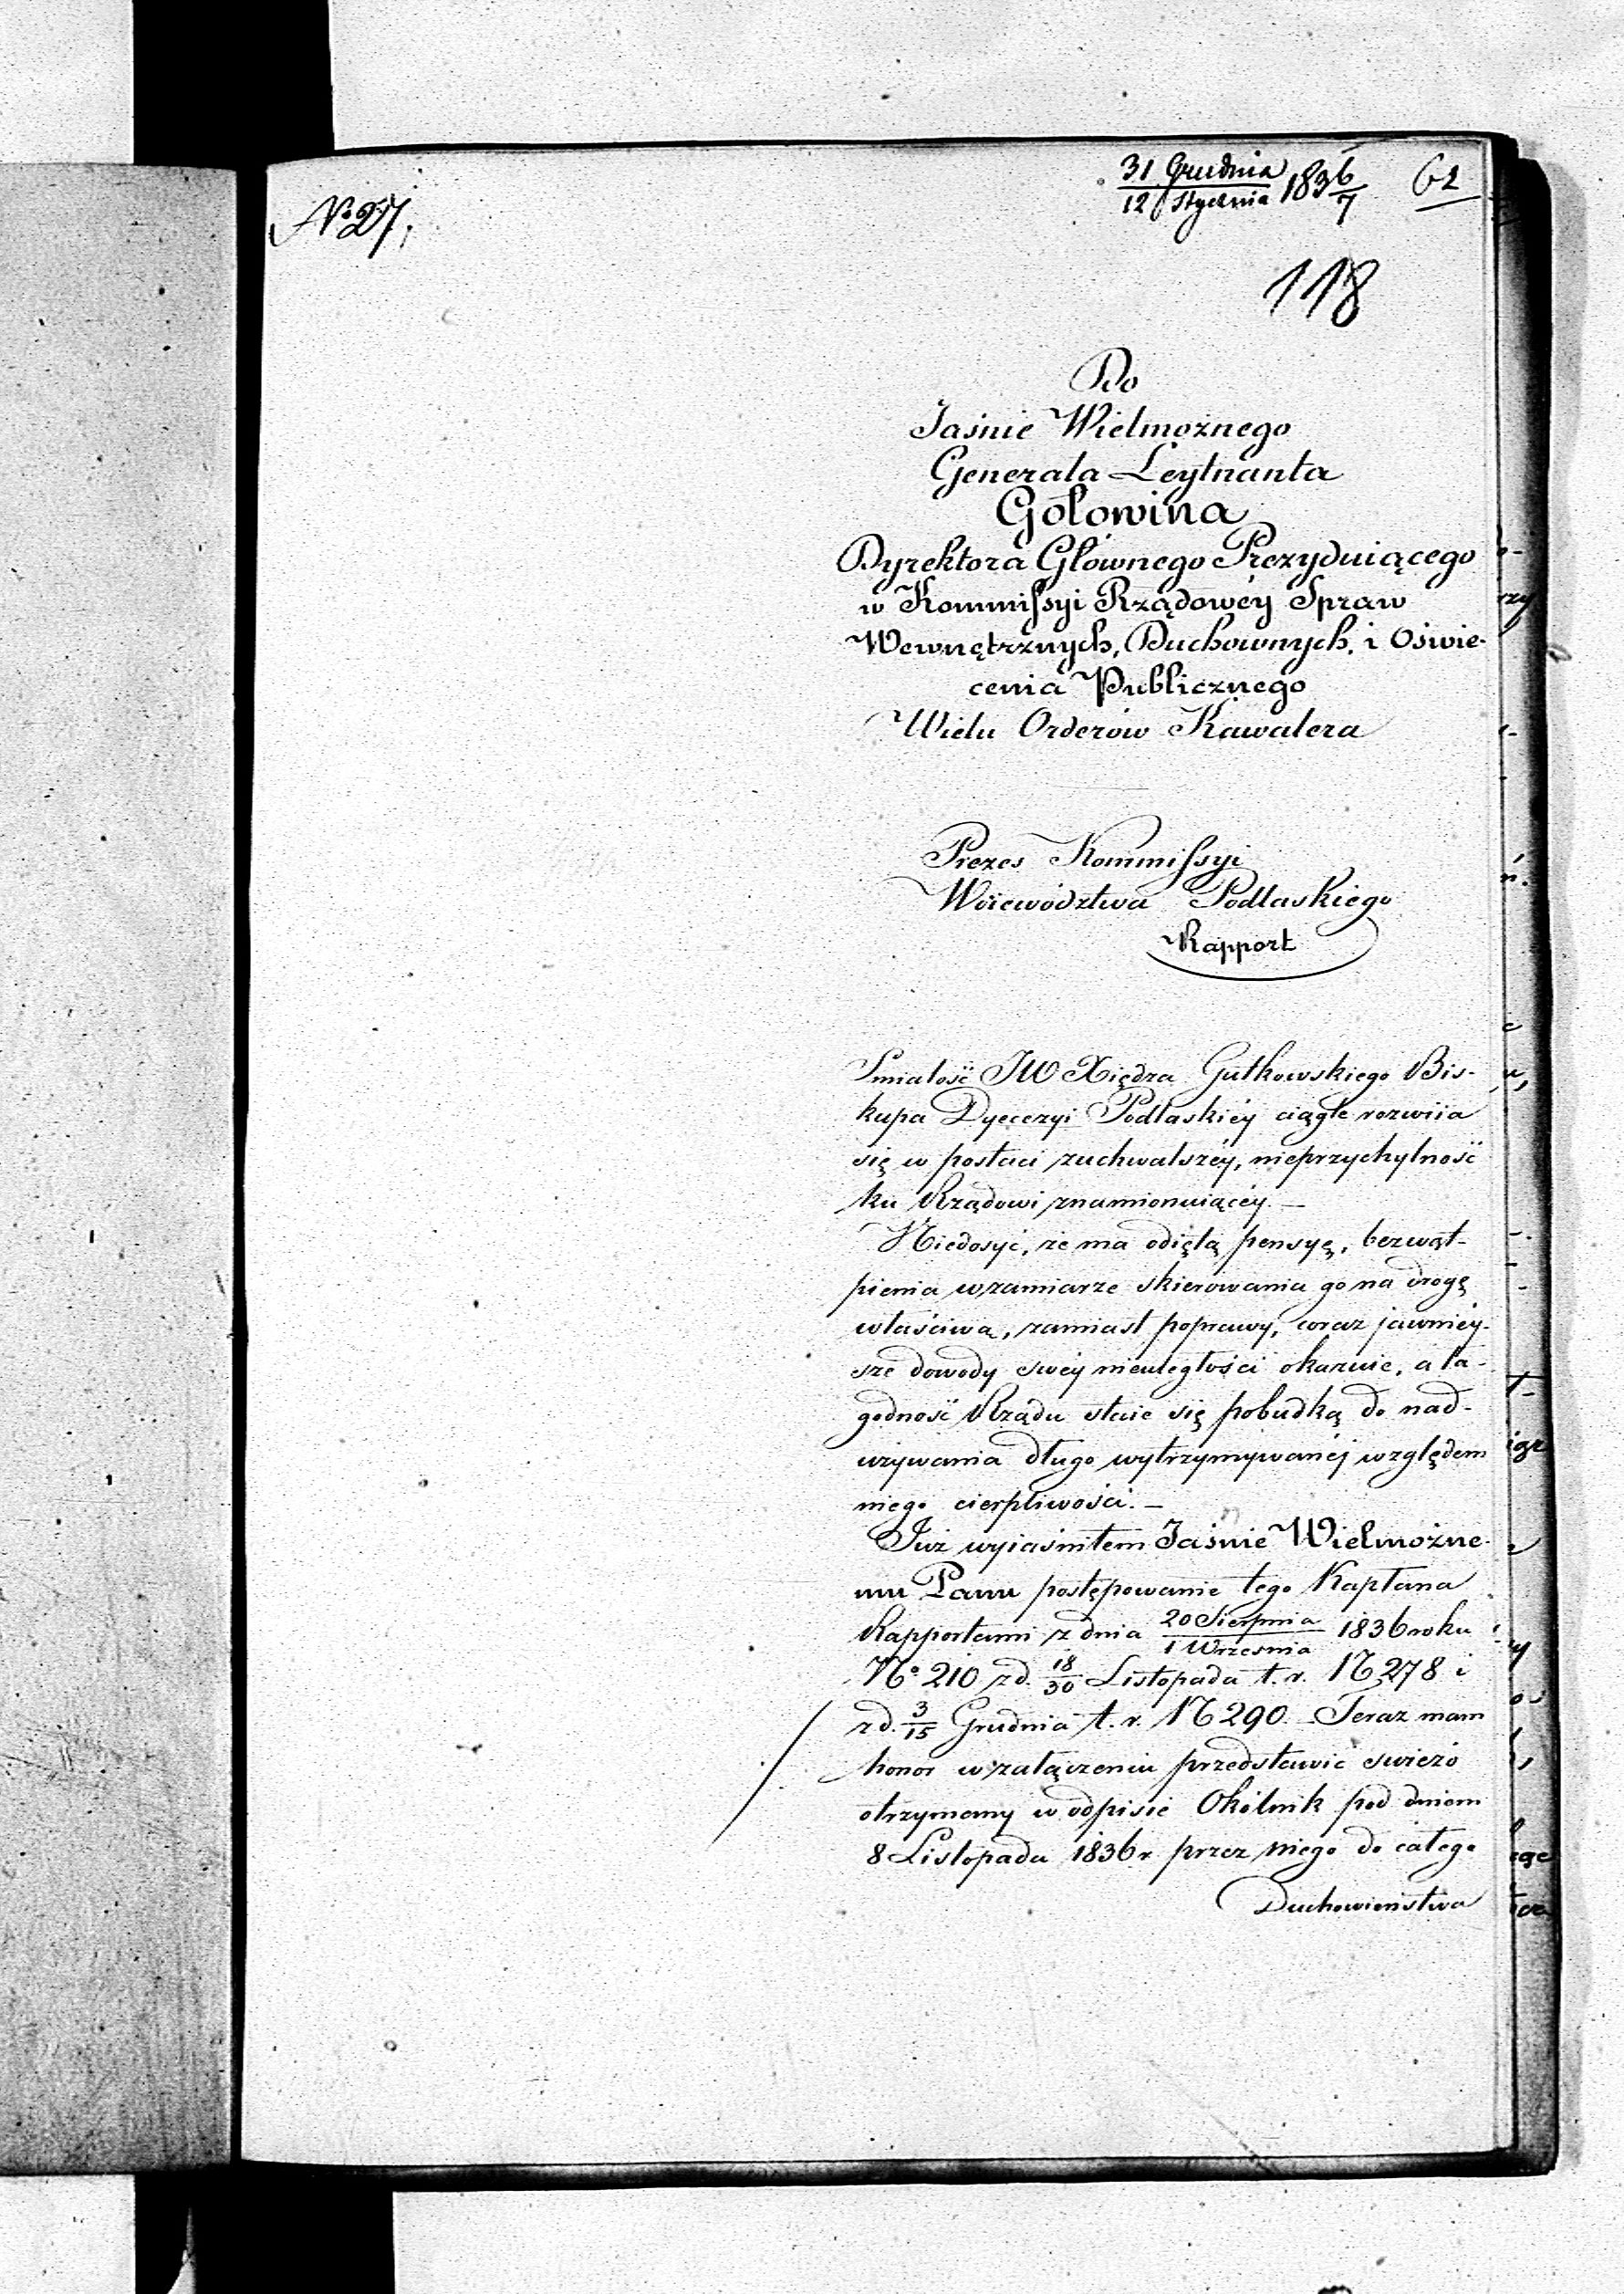 31 Grudnia / 12 Stycznia 1836/7 62
No 27.
118
Do
Jaśnie Wielmożnego
Generała Leytnanta
Gołowina
Dyrektora Głównego Prezyduiącego
w Kommissyi Rządowéy Spraw
Wewnętrznych, Duchownych i Oświe-
cenia Publicznego
Wielu Orderów Kawalera
Prezes Kommissyi
Woiewództwa Podlaskiego
Rapport
Smiałość JW Xiędza Gutkowskiego Bis-
kupa Dyecezyi Podlaskiéy ciągle rozwiia
się w postaci zuchwalszéy, nieprzychylność
ku Rządowi znamionuiącéy. —
Niedosyć, że ma odiętą pensyę, bezwąt-
pienia w zamiarze skierowania go na drogę
właściwą, zamiast poprawy, coraz jawniéy-
sze dowody swéy nieuległości okazuie, a ła-
godność Rządu staie się pobudką do nad-
używania długo wytrzymywanéj względem
niego cierpliwości. —
Już wyiaśniłem Jaśnie Wielmożne-
mu Panu postępowanie tego Kapłana
Rapportami z dnia 20 Sierpnia / 1 Wrzesnia 1836 roku
No 210 z d. 18/30 Listopada t. r. N 278 i
z d. 3/15 Grudnia t. r. N 290. — Teraz mam
honor w załączeniu przedstawić swieżo
otrzymany w odpisie Okólnik pod dniem
8 Listopada 1836 r. przez niego do całego
Duchowieństwa